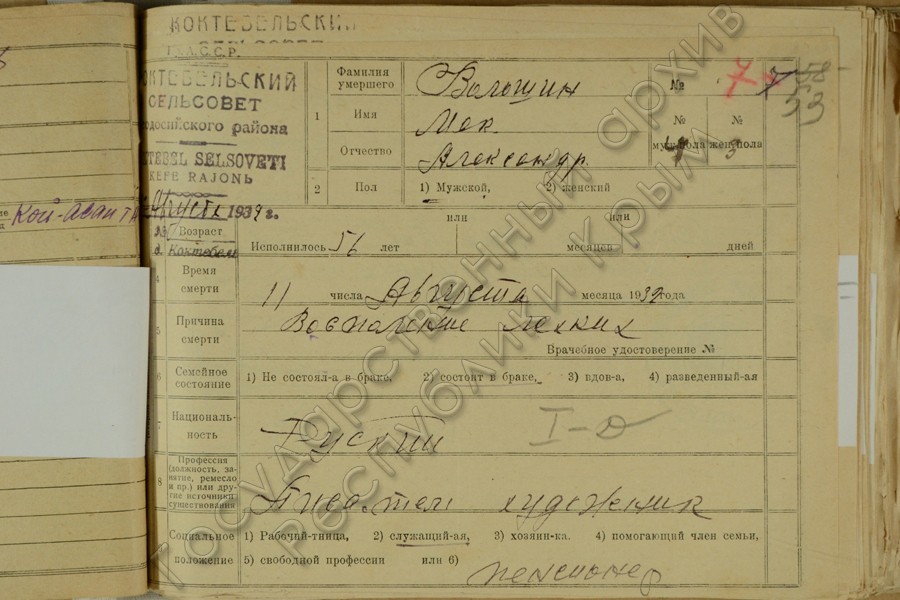 КОКТЕБЕЛЬСКИЙ
СЕЛЬСОВЕТ
С.С.Р.
ОКТЕБЕЛЬСКИЙ
СЕЛЬСОВЕТ
одосийского района
KTEBEL SELSOVETI
KEFE RAJONЬ
Августа 193 г.
д. Коктебель
Кой-Асан
1
Фамилия умершего
Волошин
№
7
7
58
53
Имя
Мак.
Отчество
Александр.
№ муж. пола
№ жен. пола
2
Пол
1) Мужской, 2) женский
Возраст
Исполнилось 56 лет
или
месяцев
или
дней
4
Время смерти
11 числа Августа месяца 1932 года
5
Причина смерти
Воспаление легких
Врачебное удостоверение №
6
Семейное состояние
1) Не состоял-а в браке, 2) состоит в браке, 3) вдов-а, 4) разведенный-ая
7
Националь-
ность
Руский
I-
8
Профессия
(должность, за-
нятие, ремесло
и пр.) или дру-
гие источники
существования
Писател художник
Социальное положение
1) Рабочий-тница, 2) служащий-ая, 3) хозяин-ка. 4) помогающий член семьи,
5) свободной профессии или 6) пенсионер
Государственный архив
Республики Крым